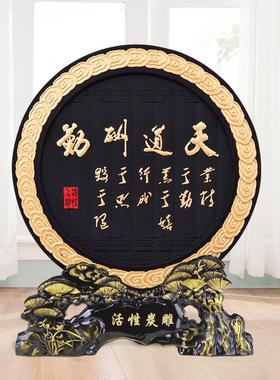 天道酬勤
業精
于勤
荒于嬉
行成
于思
毀于随
活性炭雕